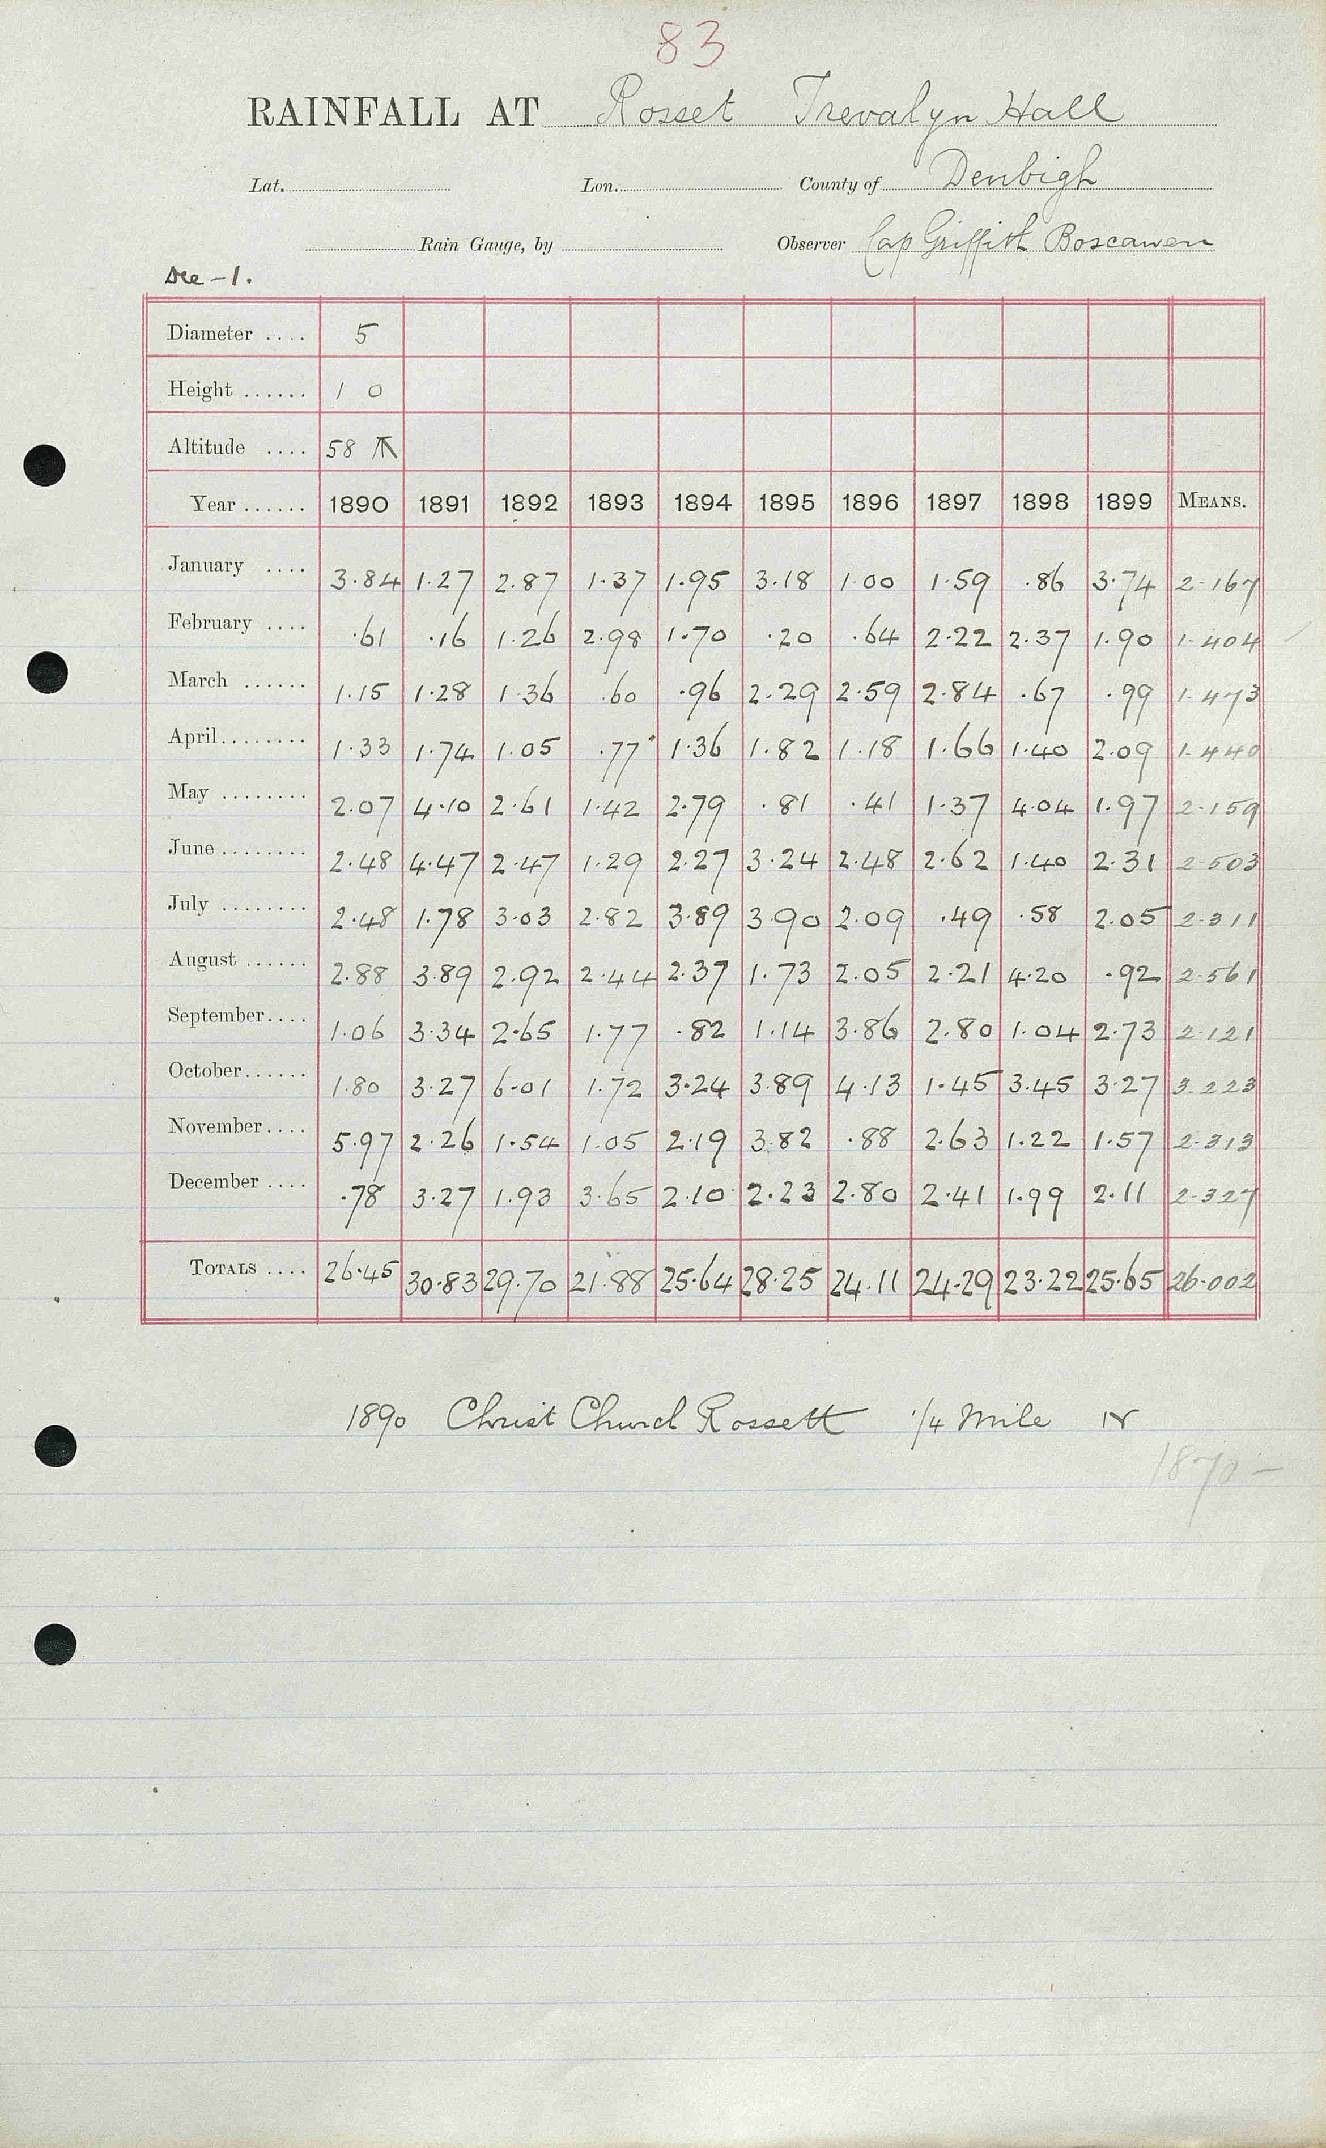 83
RAINFALL AT Rosset Trevalyn Hall
Lat. Lon. County of Denbigh
Rain Gauge, by Observer Cap Griffith Boscawen
Dee - 1.
Diameter .... 5
Height ...... 1 0
Altitude .... 58
Year ...... 1890 1891 1892 1893 1894 1895 1896 1897 1898 1899 MEANS.
January .... 3.84 1.27 2.87 1.37 1.95 3.18 1.00 1.59 .86 3.74 2.167
February .... .61 .16 1.26 2.98 1.70 .20 .64 2.22 2.37 1.90 1.404
March ...... 1.15 1.28 1.36 .60 .96 2.29 2.59 2.84 .67 .99 1.473
April........ 1.33 1.74 1.05 .77 1.36 1.82 1.18 1.66 1.40 2.09 1.440
May ........ 2.07 4.10 2.61 1.42 2.79 .81 .41 1.37 4.04 1.97 2.159
June ........ 2.48 4.47 2.47 1.29 2.27 3.24 2.48 2.62 1.40 2.31 2.503
July ........ 2.48 1.78 3.03 2.82 3.89 3.90 2.09 .49 .58 2.05 2.311
August ...... 2.88 3.89 2.92 2.44 2.37 1.73 2.05 2.21 4.20 .92 2.561
September.... 1.06 3.34 2.65 1.77 .82 1.14 3.86 2.80 1.04 2.73 2.121
October...... 1.80 3.27 6.01 1.72 3.24 3.89 4.13 1.45 3.45 3.27 3.223
November.... 5.97 2.26 1.54 1.05 2.19 3.82 .88 2.63 1.22 1.57 2.313
December .... .78 3.27 1.93 3.65 2.10 2.23 2.80 2.41 1.99 2.11 2.327
TOTALS .... 26.45 30.83 29.70 21.88 25.64 28.25 24.11 24.29 23.22 25.65 26.002
1890 Christ Church Rossett 1/4 Mile N
1870 -